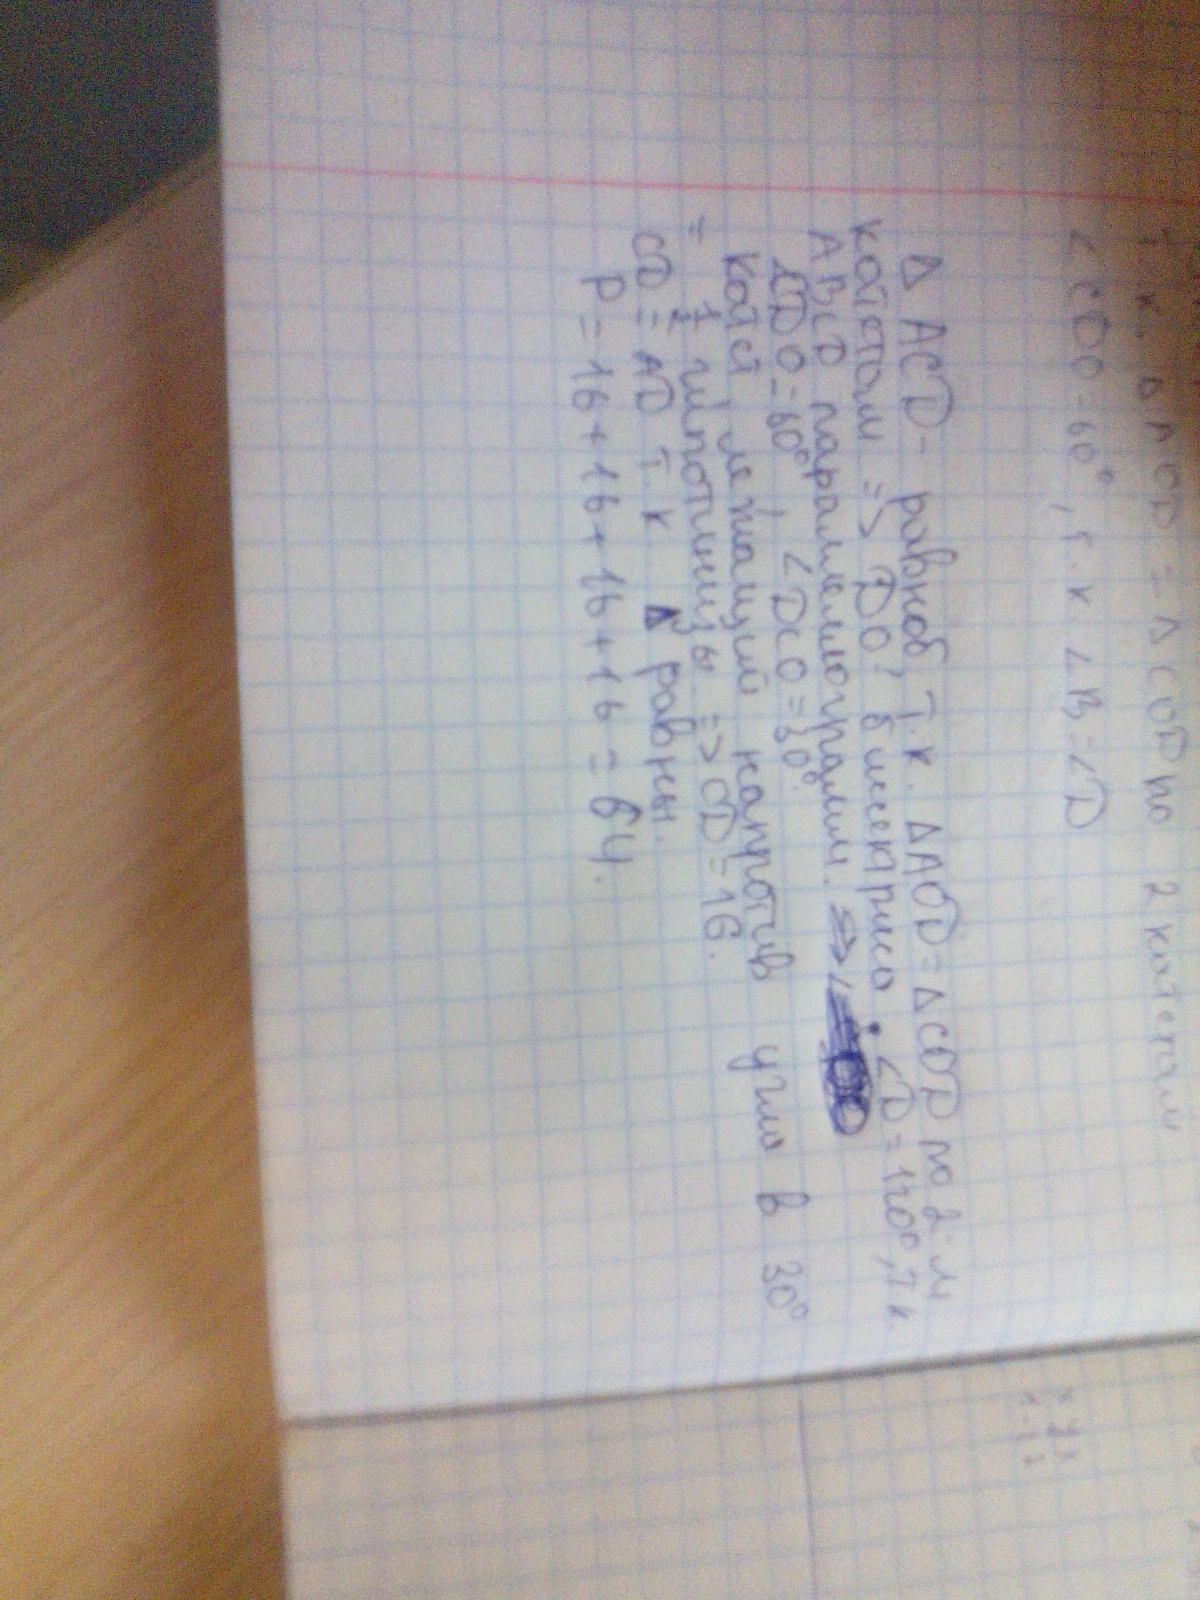 Т.к. ΔAOD = ΔCOD по 2 катетам
∠CDO=60°, т.к ∠B=∠D
Δ ACD - равноб, т.к. ΔAOD=ΔCOD по 2-м
катетам => DO; биссектриса. ∠D=120°, т.к.
ABCD параллелограмм. =>
∠CDO=60°, ∠DCO=30°.
Катет, лежащий напротив угла в 30°
= 1/2 гипотинузы => CD=16.
CD = AD т.к Δ равны.
P=16+16+16+16=64.